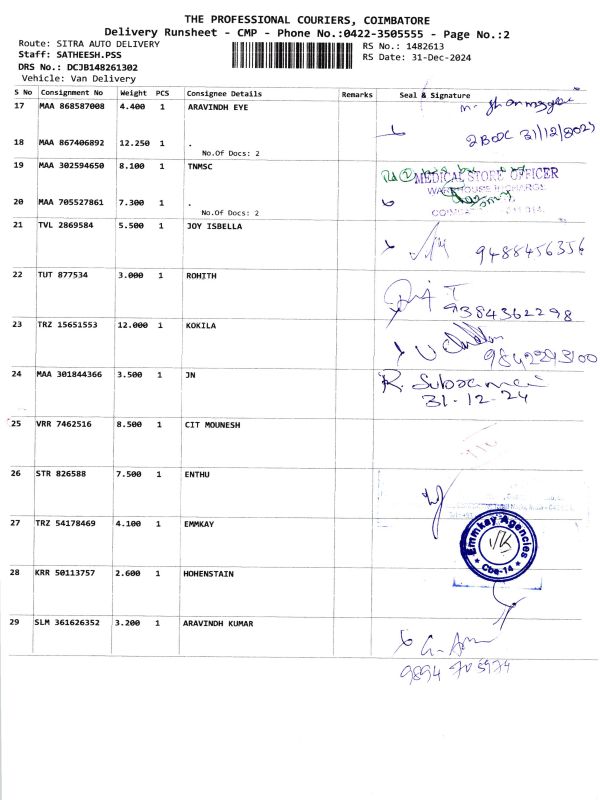 THE PROFESSIONAL COURIERS, COIMBATORE
Delivery Runsheet - CMP - Phone No.:0422-3505555 - Page No.:2
Route: SITRA AUTO DELIVERY
RS No.: 1482613
Staff: SATHEESH.PSS
RS Date: 31-Dec-2024
DRS No.: DCJB148261302
Vehicle: Van Delivery
S No Consignment No Weight PCS Consignee Details Remarks Seal & Signature
17 MAA 868587008 4.400 1 ARAVINDH EYE
18 MAA 867406892 12.250 1 .
No.Of Docs: 2
2 BOX 31/12/2024
19 MAA 302594650 8.100 1 TNMSC
MEDICAL STORE OFFICER
WAREHOUSE INCHARGE
20 MAA 705527861 7.300 1 .
No.Of Docs: 2
21 TVL 2869584 5.500 1 JOY ISBELLA
9488456356
22 TUT 877534 3.000 1 ROHITH
9384362298
23 TRZ 15651553 12.000 1 KOKILA
9842293100
24 MAA 301844366 3.500 1 JN
31-12-24
25 VRR 7462516 8.500 1 CIT MOUNESH
26 STR 826588 7.500 1 ENTHU
27 TRZ 54178469 4.100 1 EMMKAY
Emmkay Agencies
Cbe-14
28 KRR 50113757 2.600 1 HOHENSTAIN
29 SLM 361626352 3.200 1 ARAVINDH KUMAR
9894 705974